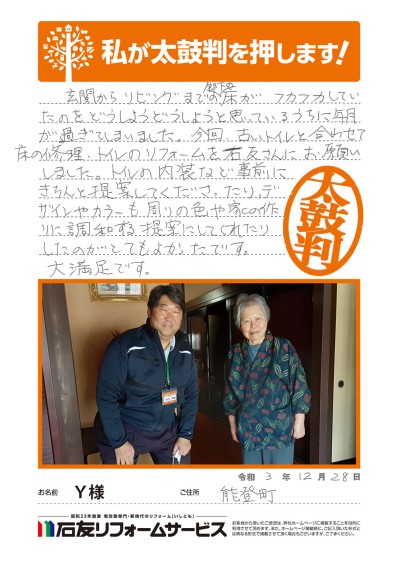 私が太鼓判を押します!
玄関からリビングまでの廊下床がフカフカしてい
たのをどうしようどうしようと思っているうちに年月
が過ぎてしまいました。今回、古いトイレと合わせて
床の修理、トイレのリフォームを石友さんにお願い
しました。トイレの内装など事前に
きちんと提案してくださったり、デ
ザインやカラーも周りの色や家の作
りに調和する提案にしてくれたり
したのがとてもよかったです。
大満足です。
太鼓判
令和 3 年 12 月 28 日
お名前 Y様 ご住所 能登町
昭和23年創業 増改築専門・新時代のリフォーム(いしとも)
石友リフォームサービス
お客様から頂いたご感想は、弊社ホームページに掲載することを目的に
利用させて頂きます。また、ホームページ掲載時に、ご記入頂いた形式と
は異なる形式で掲載させて頂く場合もございますが、ご了承ください。